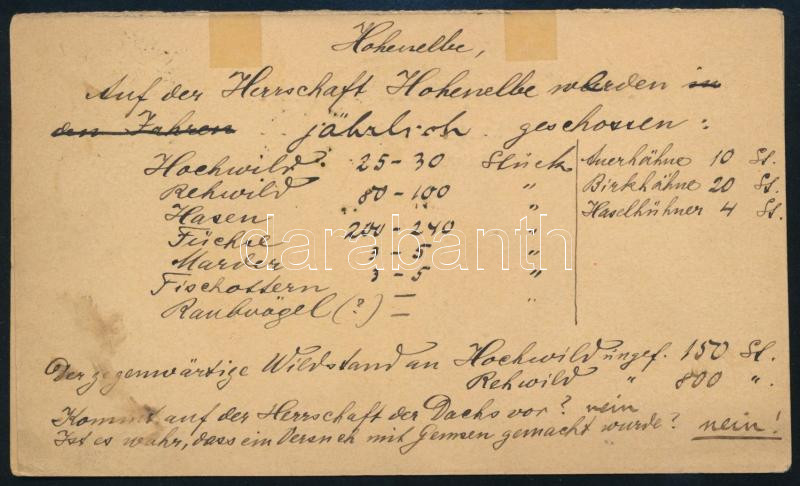 Hohenelbe,
Auf der Herrschaft Hohenelbe werden in
den Jahren jährlich geschossen:
Hochwild 25-30 Stück Auerhähne 10 St.
Rehwild 80-100 " Birkhähne 20 St.
Hasen 200-240 " Haselhühner 4 St.
Füchse 3-5 "
Marder 3-5 "
Fischottern —
Raubvögel (?) — "
darabanth
Der gegenwärtige Wildstand an Hochwild ungef. 150 St.
Rehwild " 800 ".
Kommt auf der Herrschaft der Dachs vor? nein
Ist es wahr, dass ein Versuch mit Gemsen gemacht wurde? nein!